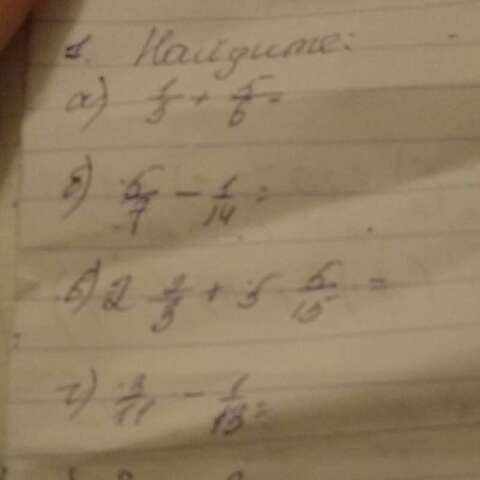 1. Найдите:
а) 1/3 + 5/6 =
б) 5/7 - 1/14 =
в) 2 2/3 + 5 5/15 =
г) 3/11 - 1/13 =